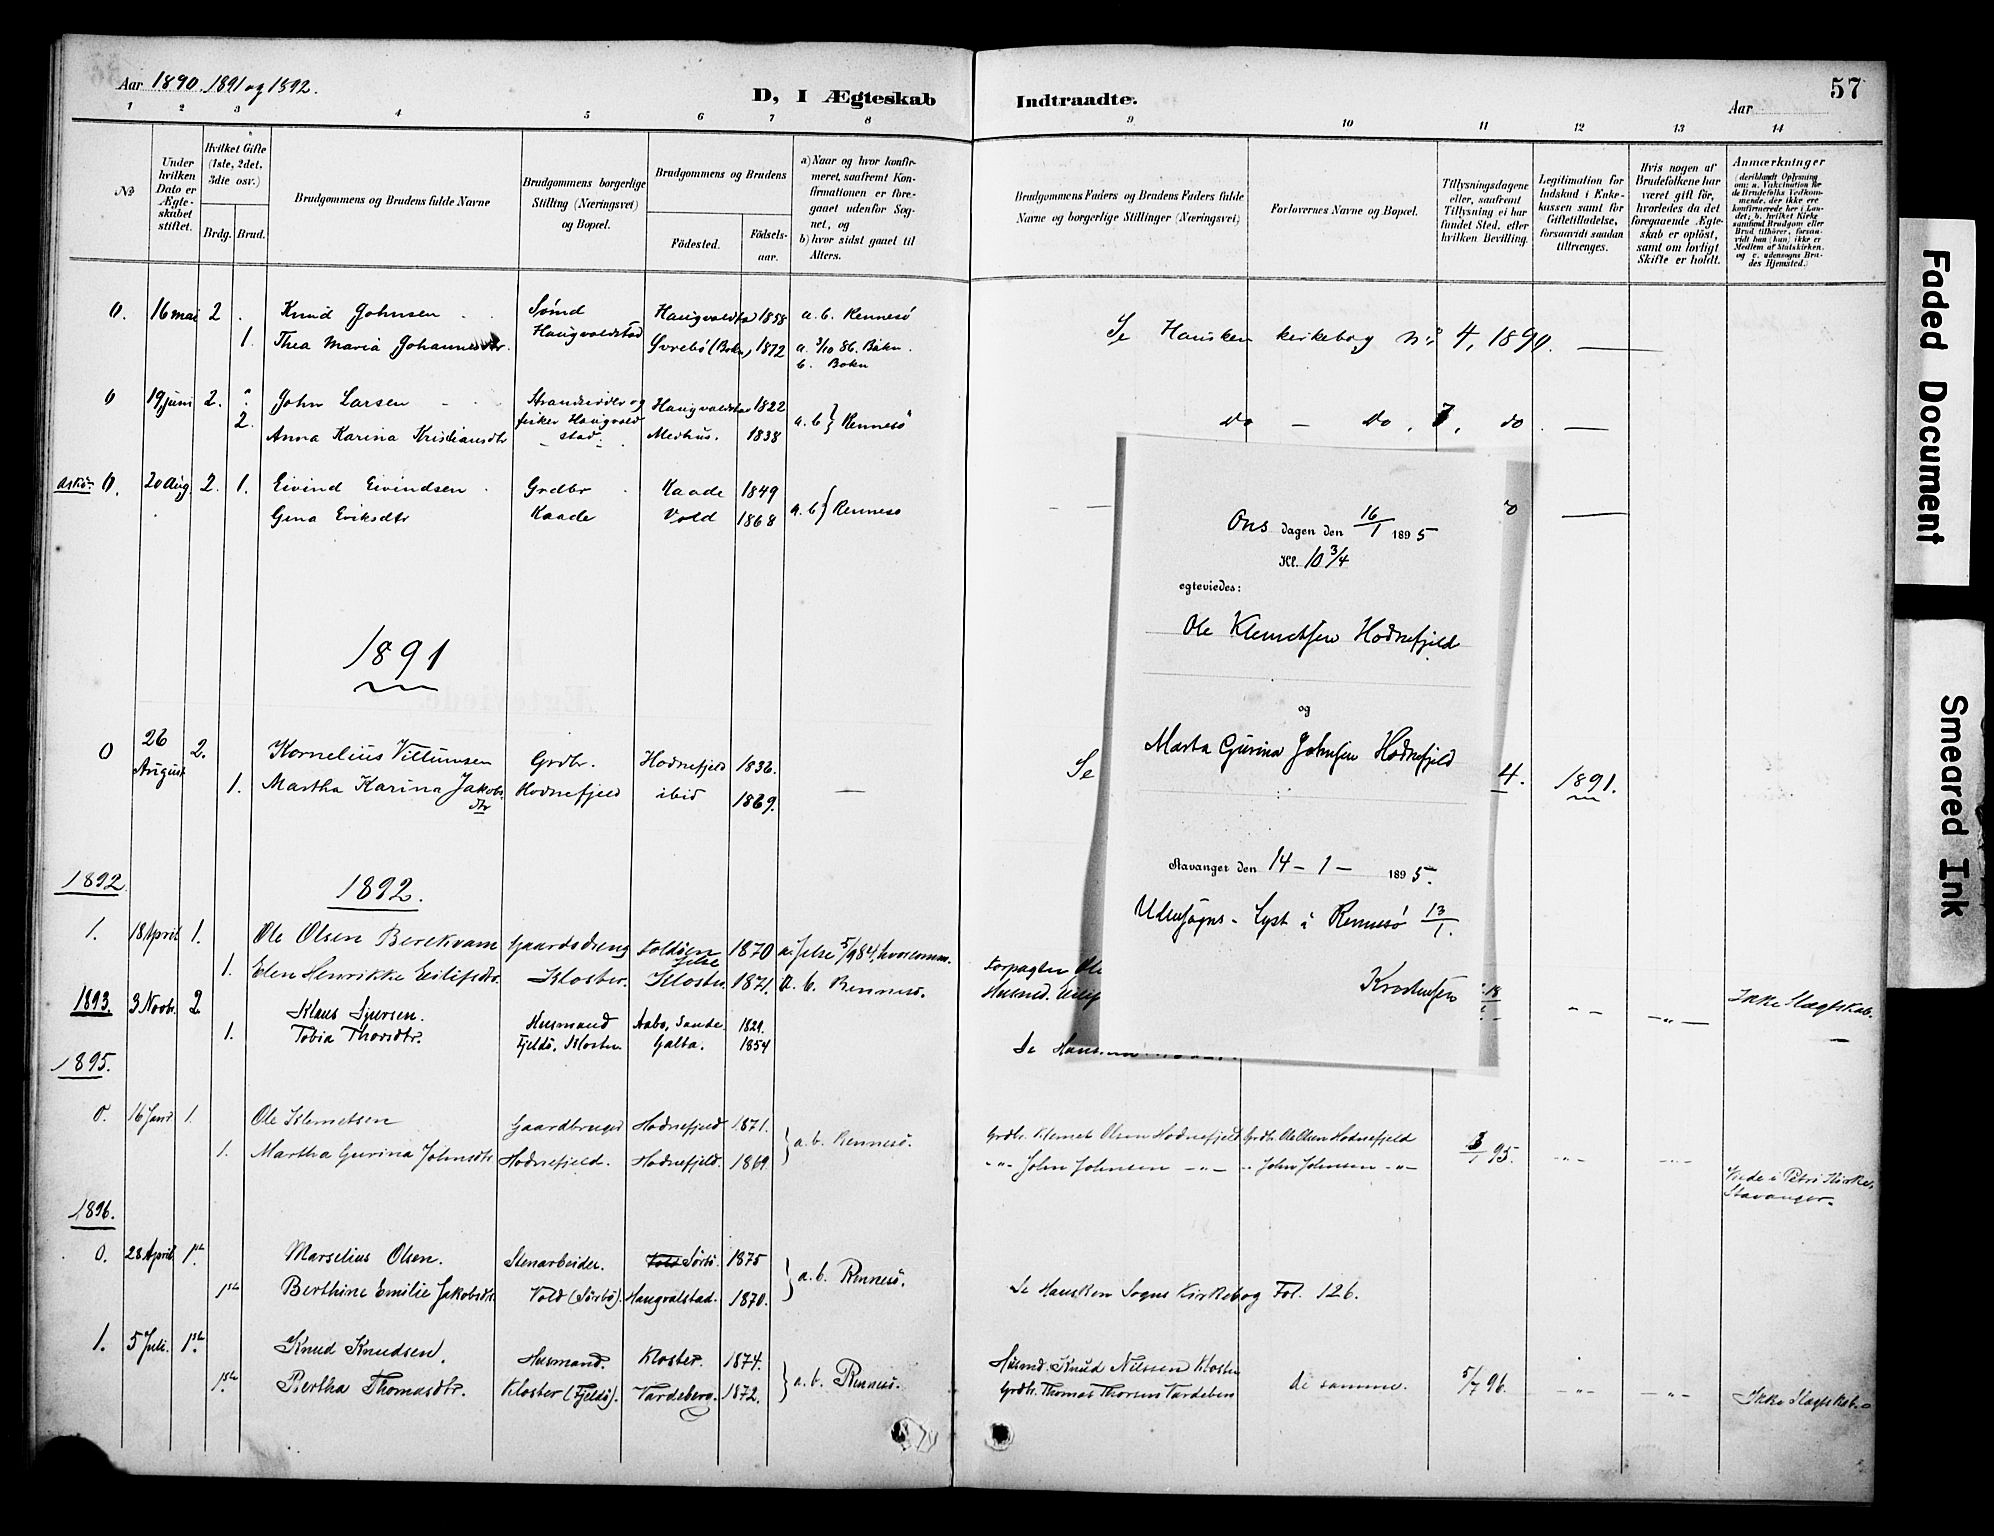 Aar 1890. 1891 og 1892.
D, I Ægteskab Indtraadte.
57
Aar
1 2 3 4 5 6 7 8 9 10 11 12 13 14
No
Under hvilken Dato er Ægteskabet stiftet.
Hvilket Gifte (1ste, 2det, 3die osv.)
Brdg. Brud.
Brudgommens og Brudens fulde Navne
Brudgommens borgerlige Stilling (Næringsvei) og Bopæl.
Brudgommens og Brudens
Födested. Födselsaar.
a) Naar og hvor konfirmeret, saafremt Konfirmationen er foregaaet udenfor Sognet, og
b) hvor sidst gaaet til Alters.
Brudgommens Faders og Brudens Faders fulde Navne og borgerlige Stillinger (Næringsvei)
Forlovernes Navne og Bopæl.
Tillysningsdagene eller, saafremt Tillysning ei har fundet Sted, efter hvilken Bevilling.
Legitimation for Indskud i Enkekassen samt for Giftetilladelse, forsaavidt saadan tiltrænges.
Hvis nogen af Brudefolkene har været gift för, hvorledes da det foregaaende Ægteskab er oplöst, samt om lovligt Skifte er holdt.
Anmærkninger
(deriblandt Oplysning om: a. Vakcination for de Brudefolks Vedkommende, der ikke ere konfirmerede her i Landet; b. hvilket Kirkesamfund Brudgom eller Brud tilhörer, forsaavidt han (hun) ikke er Medlem af Statskirken, og c. udensogns Brudes Hjemsted.)
0. 16 mai 2 . Knud Johnsen Sømd Haugvaldsta 1858 a. b. Rennesö
1. Thea Maria Johannesdtr. Haugvaldstad Gvrebö (Bokn) 1872 a. 3/10 86. Bokn.
b. Bokn
Se Hausken kirkebog No 4, 1890. —
0 19 juni 2. " John Larsen Strandsidder og Haugvaldstad 1822 a. b } Rennesö
2. Anna Karina Kristiansdtr fisker Haugvaldstad Medhus. 1838
do — do. 7, do. —
Askö 0. 20 Aug. 2. 1. Eivind Eivindsen Grdbr Kaade 1849 a. b { Rennesö
Gina Eriksdtr Kaade Vold 1868
1891
0 26 August 2. Kornelius Villumsen Grdbr. Hodnefjeld 1836.
1. Martha Karina Jakobsdtr Hodnefjeld ibid 1869. —
Se 4. 1891.
1892. 1892.
1. 18 April 1. Ole Olsen Berekvam Gaardsdreng Foldöen Jelse 1870 a. Jelse 5/9 84, hvorcomm.
1. Elen Henrikke Eilifsdtr. Kloster. Kloster 1871. a. b. Rennesö.
Forpagter Ole
Husmd. Eilif
Ikke Slægtskab.
1893. 3 Novbr. 2 Klaus Sjursen. Husmand Aabö, Sande 1829.
1. Tobia Thorsdtr. Fjeldö, Kloster Galta. 1854
1895.
0. 16 Janr 1. Ole Klemetsen Gaardbruger Hodnefjeld 1871. } a. b. Rennesö.
1. Martha Gurina Johnsdtr Hodnefjeld. Hodnefjeld. 1869.
Grdbr. Klemet Olsen Hodnefjeld Grdbr. Ole Olsen Hodnefjeld
-"- John Johnsen -"- -"- John Johnsen -"- 3/1 95. -"- -"-
Viede i Petri Kirke, Stavanger.
1896.
0. 28 April 1ste Marselius Olsen. Stenarbeider. Vold Sörbö. 1875 } a. b. Rennesö.
1ste Berthine Emilie Jakobsdtr. Vold (Sörbö). Haugvalstad. 1870.
Se Hausken Sogns Kirkebog Fol. 126.
1. 5 Juli. 1ste Knud Knudsen. Husmand. Kloster. 1874. } a. b. Rennesö.
1ste Bertha Thomasdtr. Kloster (Fjeldö). Vardeberg. 1872.
Husmd. Knud Nilssen Kloster
Grdbr. Thomas Thorsen Vardeberg de samme. 5/7 96. -"- -"- Ikke Slægtskab.
Ons dagen den 16/1 1895
Kl. 10 3/4
egteviedes:
Ole Klemetsen Hodnefjeld
og
Marta Gurina Johnsen Hodnefjeld
Stavanger den 14 - 1 - 1895.
Udensogns - Lyst i Rennesö 13/1.
Faded Document
Smeared Ink